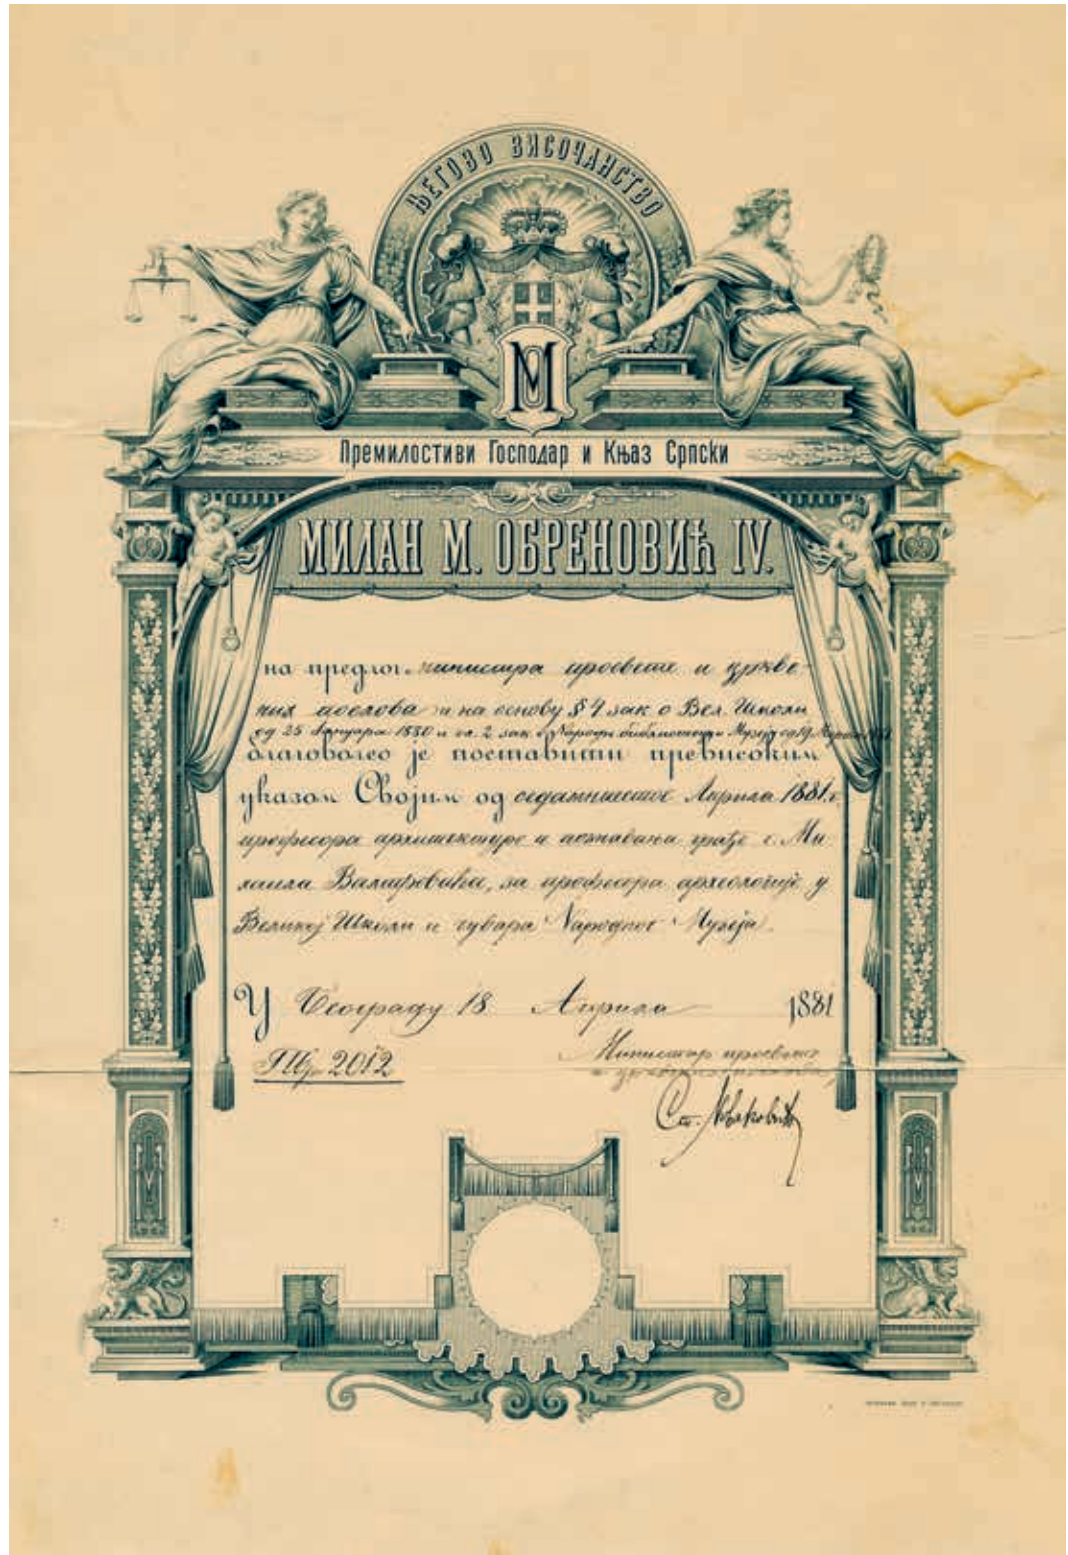 ЊЕГОВО ВИСОЧАНСТВО
М
Премилостиви Господар и Књаз Српски
МИЛАН М. ОБРЕНОВИЋ IV.
на предлог министра просвете и цркве-
них послова и на основу § 4 зак. о Вел. Школи
од 25 Јануара 1880 и чл. 2 зак. о Народн. библиотеци и Музеју од
благоволео је поставити превисоким
указом Својим од седамнаестог Априла 1881. г
професора архитектуре и познавања грађе г. Ми
хаила Валтровића, за професора археологије у
Великој Школи и чувара Народног Музеја.
У Београду 18. Априла 1881
ПБр 2012
Министар просвете
и црквених послова,
Ст. Новаковић